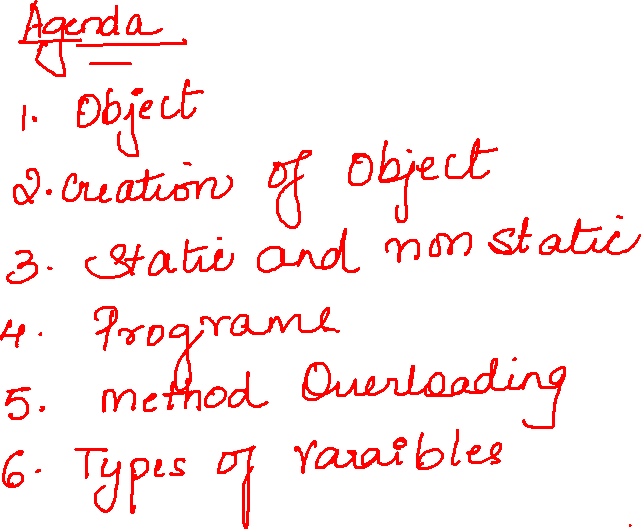 Agenda
1. Object
2. creation of object
3. Static and non static
4. Programs
5. method Overloading
6. Types of Varaibles